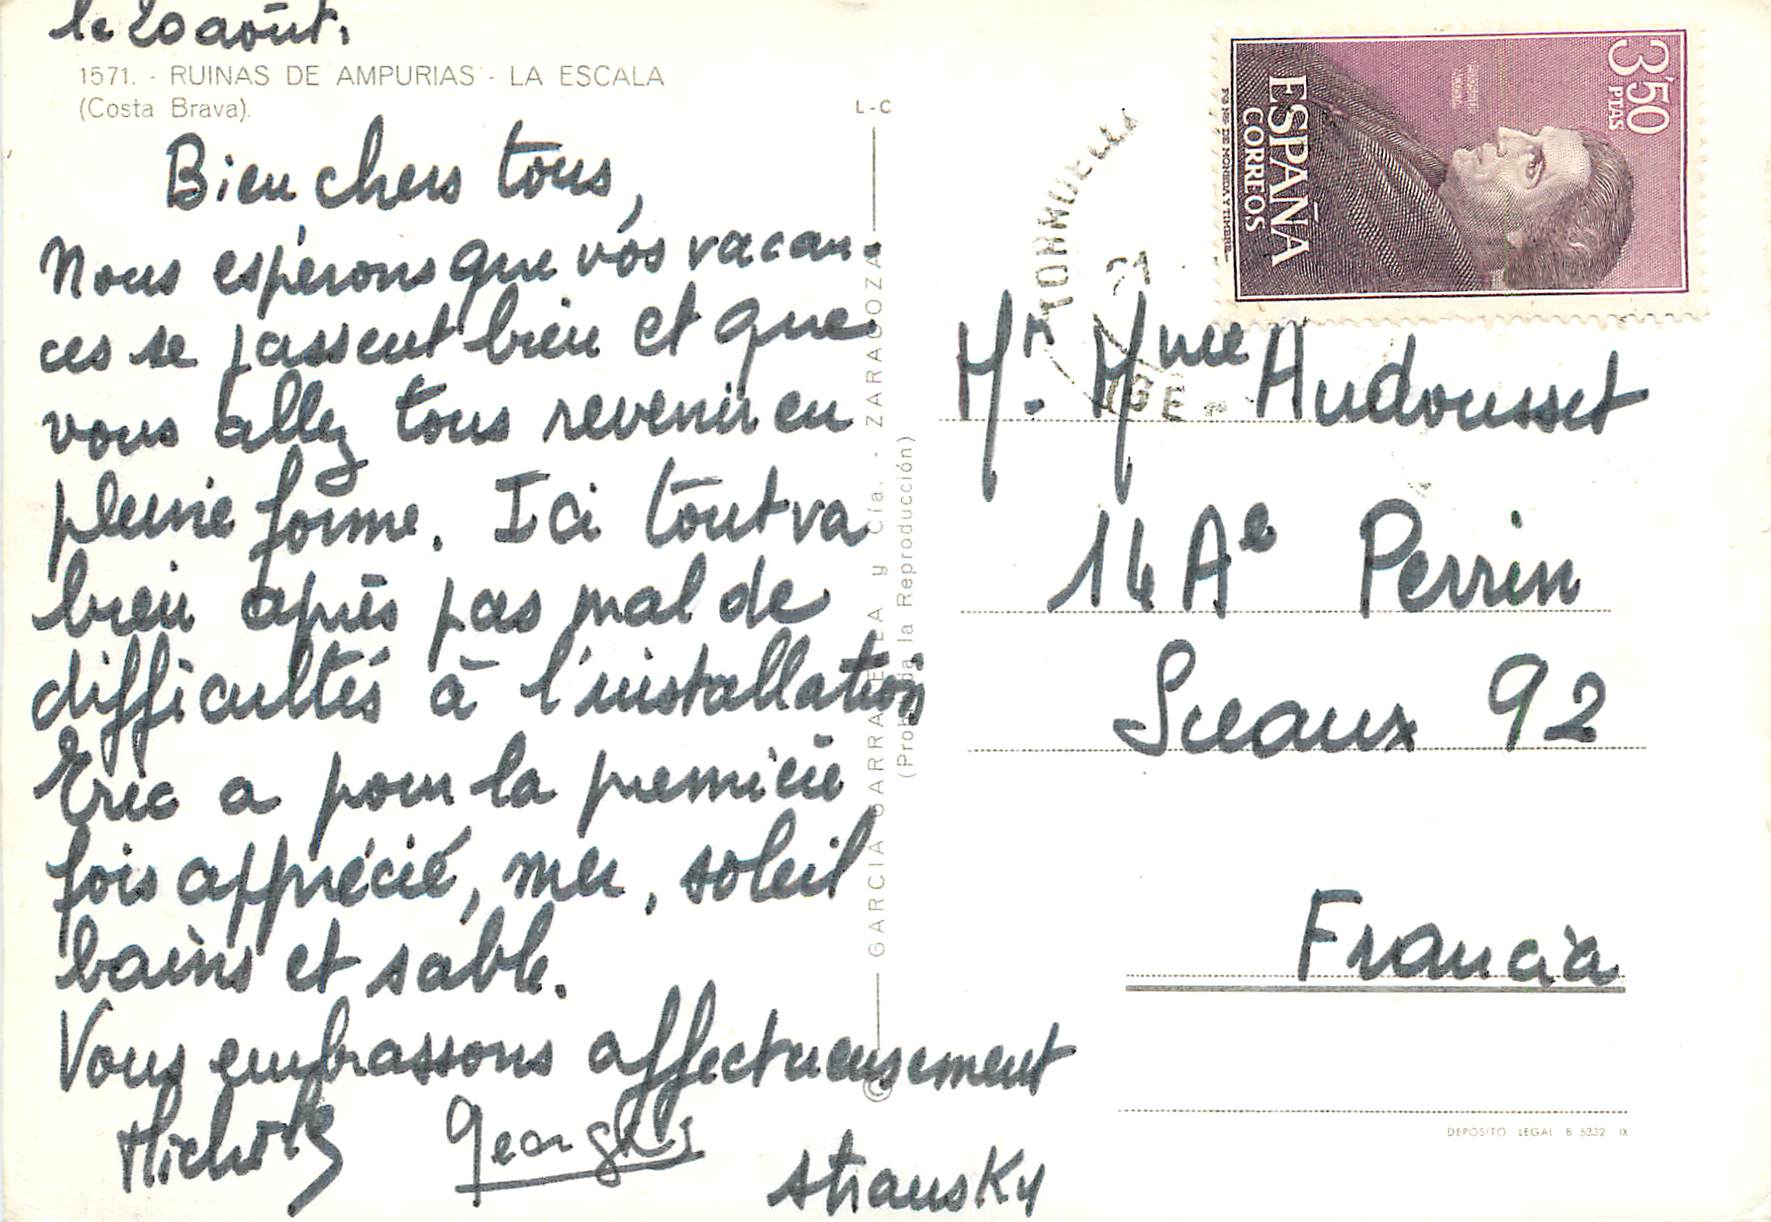 le 20 août.
1571. - RUINAS DE AMPURIAS - LA ESCALA
(Costa Brava).
Bien chers tous,
Nous espérons que vos vacan-
ces se passent bien et que
vous allez tous revenir en
pleine forme. Ici tout va
bien après pas mal de
difficultés à l'installation
Eric a pour la première
fois apprécié, mer, soleil
bains et sable.
Vous embrassons affectueusement
Michèle Georges
Stransky
L-C
GARCIA GARRABELLA y Cía. - ZARAGOZA
(Prohibida la Reproducción)
©
3'50 PTAS
ESPAÑA
CORREOS
21
GE
Mr. Mme Audousset
14 Ae Perrin
Sceaux 92
Francia
DEPOSITO LEGAL B 5332 IX